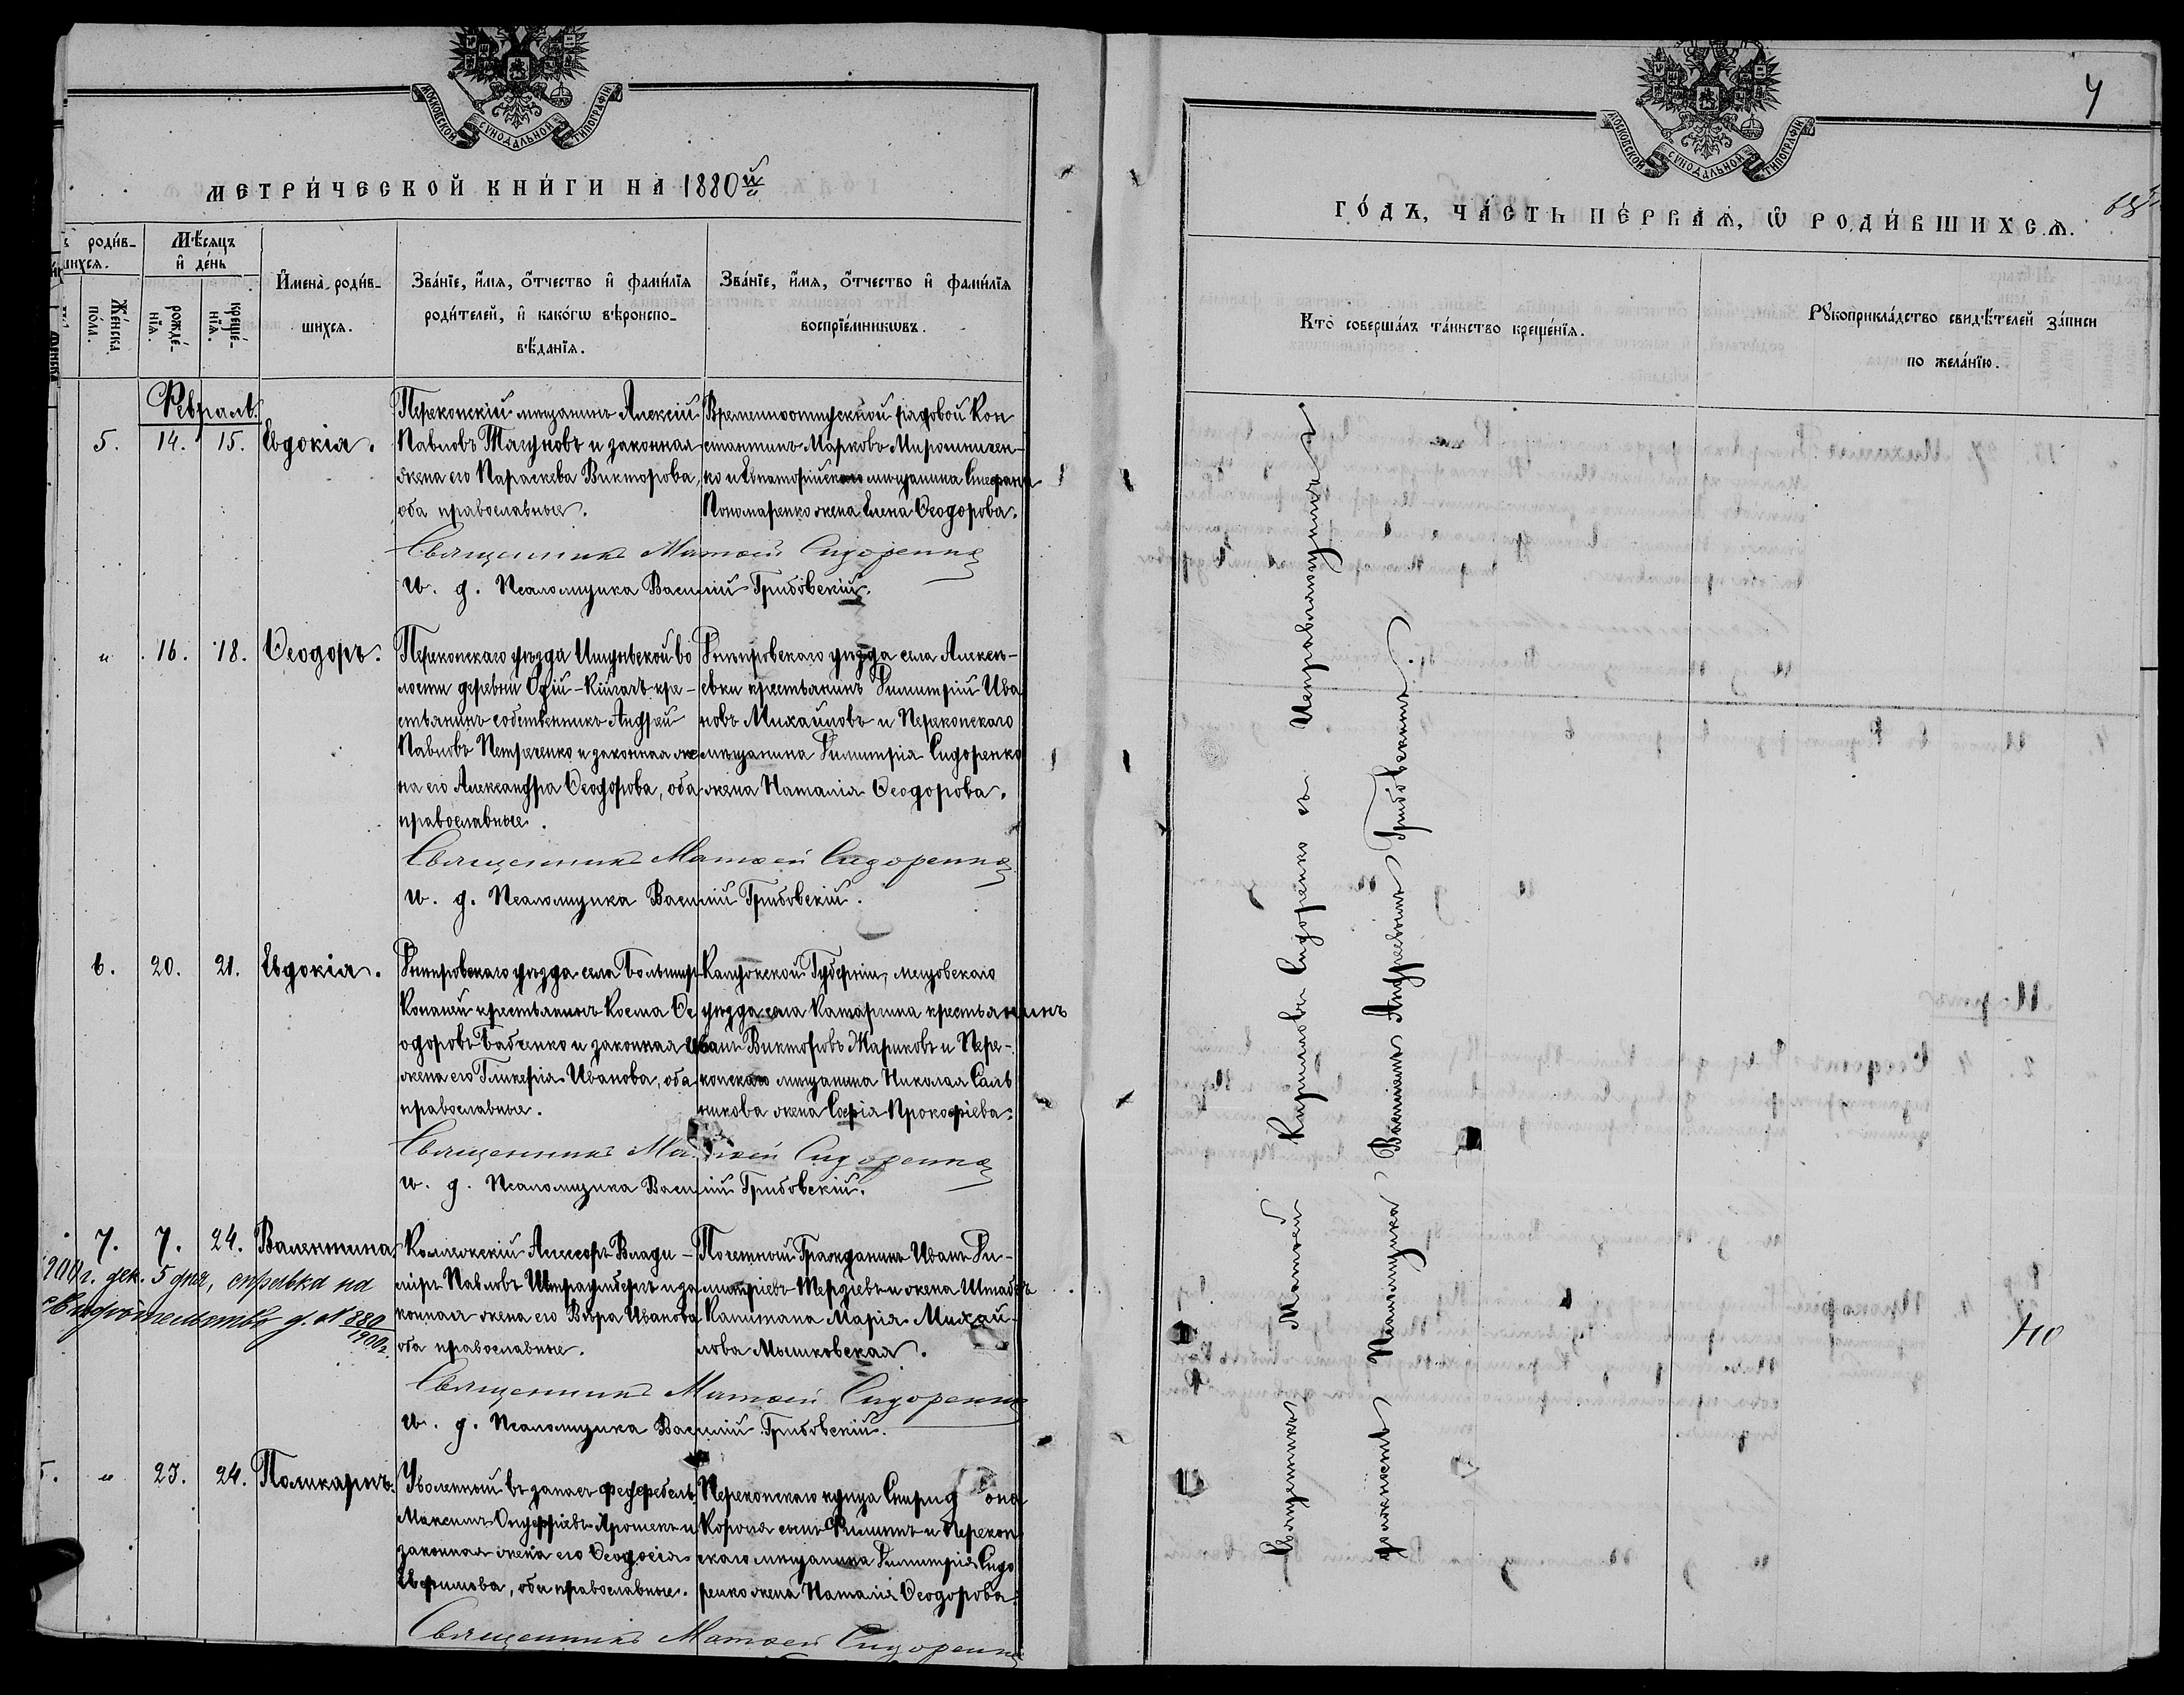 МОСКОВСКОЙ СУНОДАЛЬНОЙ ТИПОГРАФІИ
МЕТРИ́ЧЕСКОЙ КНИ́ГИ НА 1880й
роди́в-
шихсѧ.
Же́нска по́ла.
Мѣ́сяцъ и҆ де́нь
рожде́-нїѧ.
креще́-нїѧ.
И҆мена̀ роди́в-
шихсѧ.
Зва́нїе, и҆́мѧ, ѻ҆́тчество и҆ фами́лїѧ
роди́телей, и҆ како́гѡ вѣроиспо-
вѣ́данїѧ.
Зва́нїе, и҆́мѧ, ѻ҆́тчество и҆ фами́лїѧ
воспрїе́мникѡвъ.
Февраль.
5. 14. 15. Евдокія.
Перекопскій мѣщанинъ Алексій
Павловъ Тягуновъ и законная
жена его Параскева Викторова,
оба православные.
Временноотпускной рядовой Кон
стантинъ Марковъ Мирошничен-
ко и Евпаторійскаго мѣщанина Стефана
Пономаренко жена Елена Ѳеодорова.
Священникъ Матѳей Сидоренко
И. д. Псаломщика Василій Грибовскій.
" 16. 18. Ѳеодоръ.
Перекопскаго уѣзда Ишуньской во
лости деревни Огій-Кійгатъ кре-
стьянинъ собственникъ Андрей
Павловъ Петреченко и законная же
на его Александра Ѳеодорова, оба
православные.
Днѣпровскаго уѣзда села Алексѣ-
евки крестьянинъ Димитрій Ива
новъ Михайловъ и Перекопскаго
мѣщанина Димитрія Сидоренко
жена Наталія Ѳеодорова.
Священникъ Матѳей Сидоренко
И. д. Псаломщика Василій Грибовскій.
6. 20. 21. Евдокія.
Днѣпровскаго уѣзда села Большихъ
Копаней крестьянинъ Косма Ѳе
одоровъ Бабченко и законная
жена его Гликерія Иванова, оба
православные.
Калужской Губерніи,
уѣзда села крестьянинъ
Иванъ Викторовъ Жариковъ и Пере-
копскаго мѣщанина Николая Саль
никова жена Софія Прокофіева.
Священникъ Матѳей Сидоренко
И. д. Псаломщика Василій Грибовскій.
7. 7. 24. Валентина
г. дек. 5 дня, справка на
свидѣтельство д. № 880
1900 г.
Коллежскій Ассесоръ Влади-
міръ Павловъ Штраумбергъ и за
конная жена его Вѣра Иванова
оба православные.
Почетной Гражданинъ Иванъ Ди-
митріевъ Терзіевъ и жена Штабсъ
Капитана Марія Михай-
лова Мышковская.
Священникъ Матѳей Сидоренко
И. д. Псаломщика Василій Грибовскій.
5. " 23. 24. Поликарпъ.
Уволенной въ запасъ фельдфебель
Максимъ Онуфріевъ и
законная жена его Ѳеодосія
Евфимова, оба православные.
Перекопскаго купца Спиридона
Короля сынъ Филиппъ и Перекоп
скаго мѣщанина Димитрія Сидо
ренко жена Наталія Ѳеодорова.
Священникъ Матѳей Сидоренко
МОСКОВСКОЙ СУНОДАЛЬНОЙ ТИПОГРАФІИ
4
ГО́ДЪ, ЧА́СТЬ ПЕ́РВАѦ, Ѡ҆ РОДИ́ВШИХСѦ.
Кто̀ соверша́лъ та́инство креще́нїѧ.
Рꙋкоприкла́дство свидѣ́телей за́писи
по жела́нїю.
Священникъ Матѳей Кириловъ Сидоренко съ Исправляющимъ
должность Псаломщика Василіемъ Андреевымъ Грибовскимъ.